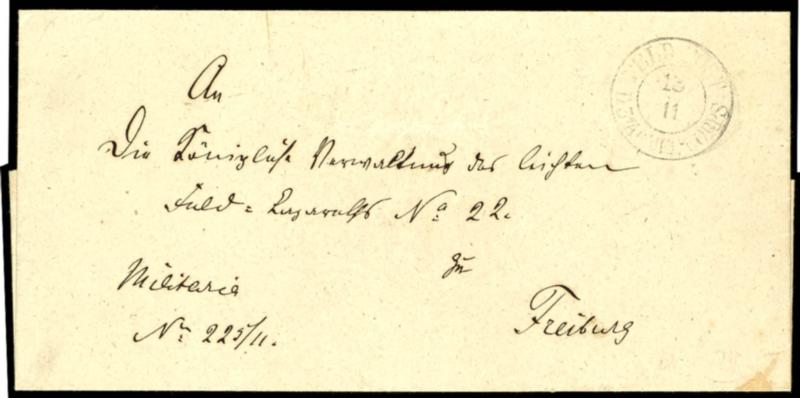 An
Die Königliche Verwaltung des leichten
Feld-Lazareths No 22.
zu
Freiburg
Militaria
Nr. 225/11.
FELD
13
11